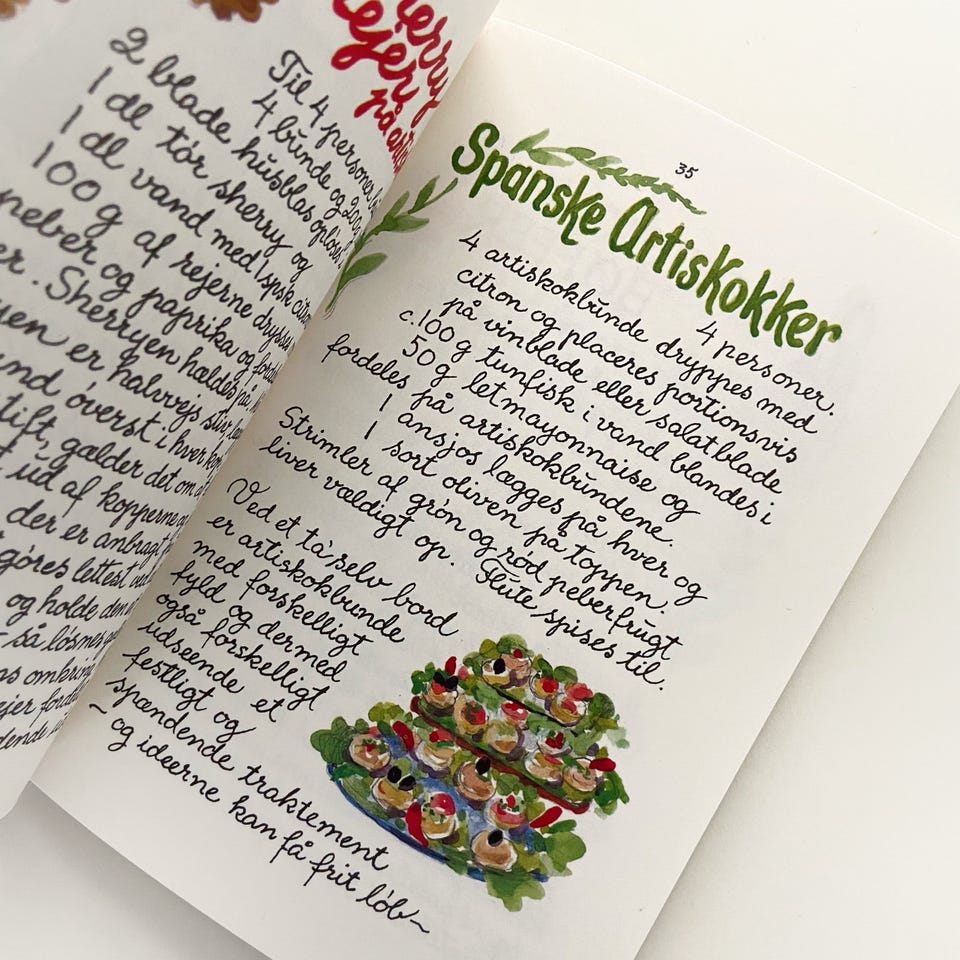 erry
rejer
på
Til 4 personer
4 bunde og 200g
2 blade husblas opløses
1 dl tør sherry og
1 dl vand med 1 spsk citron
100 g af rejerne drysses
peber og paprika og
Sherryen hældes på
er halvvejs stiv
øverst i hver
gælder det om at
ud af kopperne
der er anbragt
gøres lettest ved
og holde den
så løsnes
omkring
35
Spanske Artiskokker
4 personer.
4 artiskokbunde dryppes med
citron og placeres portionsvis
på vinblade eller salatblade
c.100 g tunfisk i vand blandes i
50 g letmayonnaise og
fordeles på artiskokbundene.
1 ansjos lægges på hver og
1 sort oliven på toppen.
Strimler af grøn og rød peberfrugt
liver vældigt op. Flute spises til.
Ved et ta'selv bord
er artiskokbunde
med forskelligt
fyld og dermed
også forskelligt
udseende et
festligt og
spændende traktement
~ og ideerne kan få frit løb~